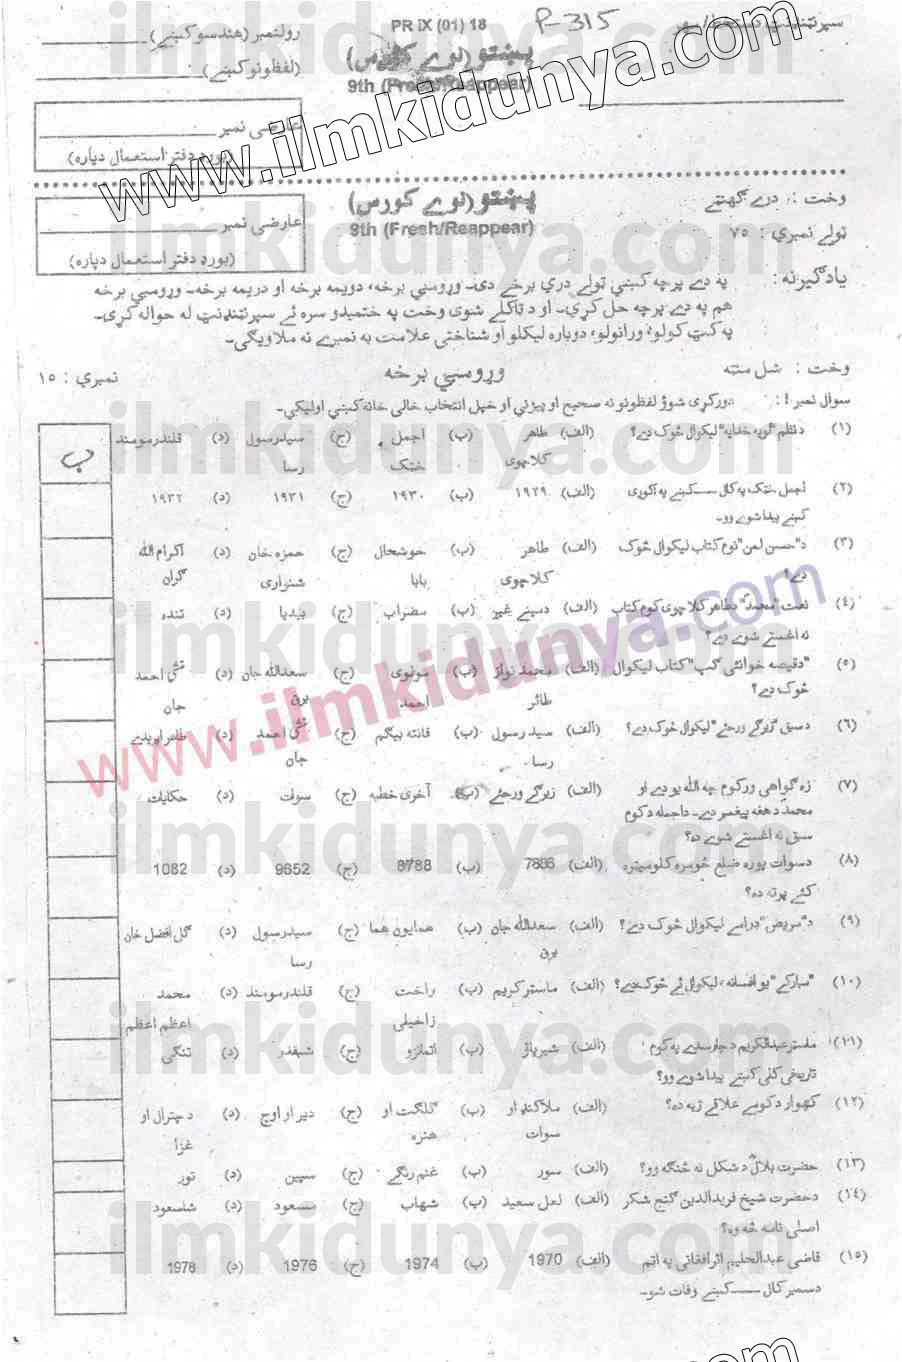 سپرنٹنډنټ دستخط/مهر
P-315
PR iX (01) 18
رولنمبر (هندسو کښې)
پښتو (نوے کورس)
(لفظونو کښې)
9th (Fresh/Reappear)
عارضی نمبر
(بورډ دفتر استعمال دپاره)
www.ilmkidunya.com
وخت : درے گهنټے
پښتو (نوے کورس)
عارضی نمبر
ټولے نمبرې : ۷۵
9th (Fresh/Reappear)
(بورډ دفتر استعمال دپاره)
یادګیرنه : په دے پرچه کښې ټولے درې برخے دی۔ وړومبې برخه، دویمه برخه او دریمه برخه۔ وړومبې برخه
هم په دے پرچه حل کړې۔ او د ټاکلے شوی وخت په ختمیدو سره ئے سپرنټنډنټ له حواله کړی۔
په کټ کولو، ورانولو، دوباره لیکلو او شناختی علامت به نمبرے نه ملاویږی۔
وخت : شل منټه
وړومبې برخه
نمبرې : ۱۵
سوال نمبر ۱: ورکړی شوؤ لفظونو نه صحیح او پیژنی او خپل انتخاب خالی خانه کښې اولیکې۔
(۱) د نظم "لویه خدایه" لیکوال څوک دے؟ (الف) طاهر کلاچوی (ب) اجمل خټک (ج) سید رسول رسا (د) قلندر مومند
ب
(۲) اجمل خټک په کال ــــ کښې په اکوړی (الف) ۱۹۲۹ (ب) ۱۹۳۰ (ج) ۱۹۳۱ (د) ۱۹۳۲
کښې پیدا شوے وو۔
(۳) د "حسن لمن" نوم کتاب لیکوال څوک (الف) طاهر کلاچوی (ب) خوشحال بابا (ج) حمزه خان شنواری (د) اکرام الله ګران
دے؟
(۴) نعت "محمدؐ" د طاهر کلاچوی کوم کتاب (الف) دسپنے غیږ (ب) مضراب (ج) بیدیا (د) تنده
نه اغستے شوے دے؟
(۵) "دقیصه خوانئی ګپ" کتاب لیکوال (الف) محمد نواز طائر (ب) مولوی احمد (ج) سعدالله جان برق (د) منشی احمد جان
څوک دے؟
(۶) د سبق "زیرګے ورجئے" لیکوال څوک دے؟ (الف) سید رسول رسا (ب) فانته بیګم (ج) منشی احمد جان (د) طاهر اپریدے
(۷) زه ګواهی ورکوم چه الله یو دے او (الف) زیرګے ورجئے (ب) آخری خطبه (ج) سوات (د) حکایات
محمدؐ د هغه پیغمبر دے۔ دا جمله د کوم
سبق نه اغستے شوے ده؟
(۸) د سوات پوره ضلع څومره کلومیټره (الف) 7886 (ب) 8788 (ج) 9652 (د) 1082
کئے پرته ده؟
(۹) د "مریض" ډرامے لیکوال څوک دے؟ (الف) سعدالله جان برق (ب) همایون هما (ج) سید رسول رسا (د) ګل افضل خان
(۱۰) یو افسانه، لیکوال ئے څوک دے؟ (الف) ماسټر کریم (ب) راحت زاخیلی (ج) قلندر مومند (د) محمد اعظم اعظم
(۱۱) ماسټر عبدالکریم د چارسدے په کوم (الف) شیرپاؤ (ب) اتمانزو (ج) شبقدر (د) تنګی
تاریخی کلی کښې پیدا شوے وو؟
(۱۲) کهوار د کومے علاقے ژبه ده؟ (الف) ملاکنډ او سوات (ب) ګلګت او هنزه (ج) دیر او اوچ (د) د چترال او غزا
(۱۳) حضرت بلالؓ د شکل نه څنګه وو؟ (الف) سور (ب) غنم رنګے (ج) سپین (د) تور
(۱۴) د حضرت شیخ فریدالدین ګنج شکر (الف) لعل سعید (ب) شهاب (ج) مسعود (د) شاه سعود
اصلی نامه څه وه؟
(۱۵) قاضی عبدالحلیم اثر افغانی په اتم (الف) 1970 (ب) 1974 (ج) 1976 (د) 1978
دسمبر کال ــــ کښې وفات شو۔
www.ilmkidunya.com